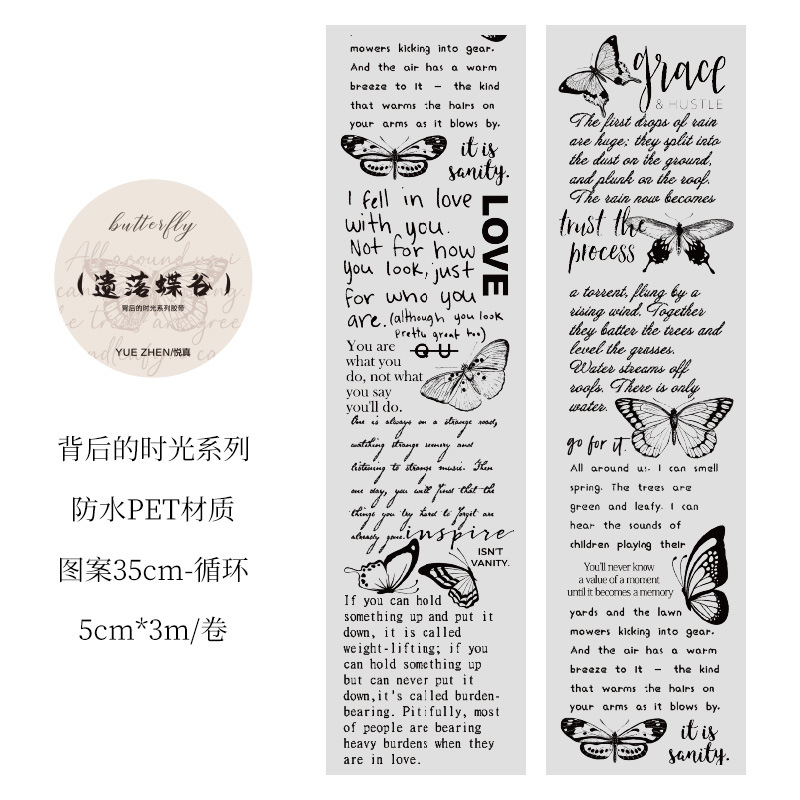 butterfly
(遗落蝶谷)
背后的时光系列胶带
YUE ZHEN/悦真
背后的时光系列
防水PET材质
图案35cm-循环
5cm*3m/卷
mowers kicking into gear.
And the air has a warm
breeze to it – the kind
that warms the hairs on
your arms as it blows by.
it is
sanity.
I fell in love
with you.
Not for how
you look, just
for who you
are. (although you look
pretty great too)
LOVE
QU
You are
what you
do, not what
you say
you'll do.
One is always on a strange road,
watching strange scenery and
listening to strange music. Then
one day, you will find that the
things you try hard to forget are
already gone.
inspire
ISN'T
VANITY.
If you can hold
something up and put it
down, it is called
weight-lifting; if you
can hold something up
but can never put it
down,it's called burden-
bearing. Pitifully, most
of people are bearing
heavy burdens when they
are in love.
grace
& HUSTLE
The first drops of rain
are huge; they split into
the dust on the ground,
and plunk on the roof.
The rain now becomes
trust the
process
a torrent, flung by a
rising wind. Together
they batter the trees and
level the grasses.
Water streams off
roofs. There is only
water.
go for it.
All around us I can smell
spring. The trees are
green and leafy. I can
hear the sounds of
children playing their
You'll never know
a value of a moment
until it becomes a memory
yards and the lawn
mowers kicking into gear.
And the air has a warm
breeze to it – the kind
that warms the hairs on
your arms as it blows by.
it is
sanity.